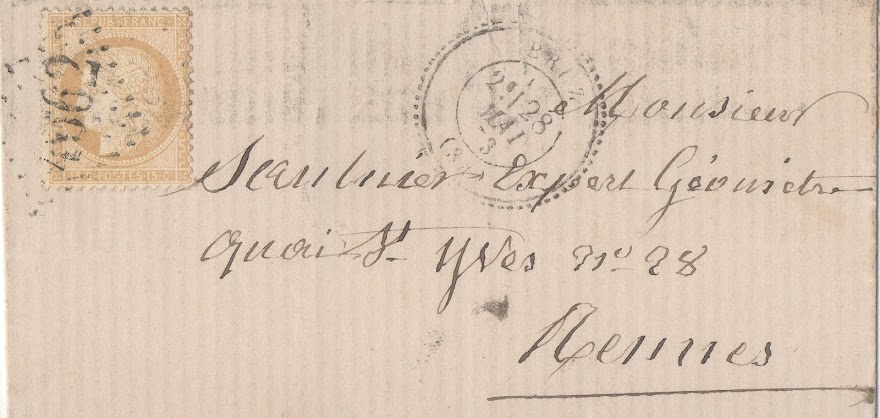 REPUB. FRANC.
POSTES 15 C
BRUZ
28
MAI
Monsieur
Saulnier Expert Géomètre
quai St Yves no 28
Rennes